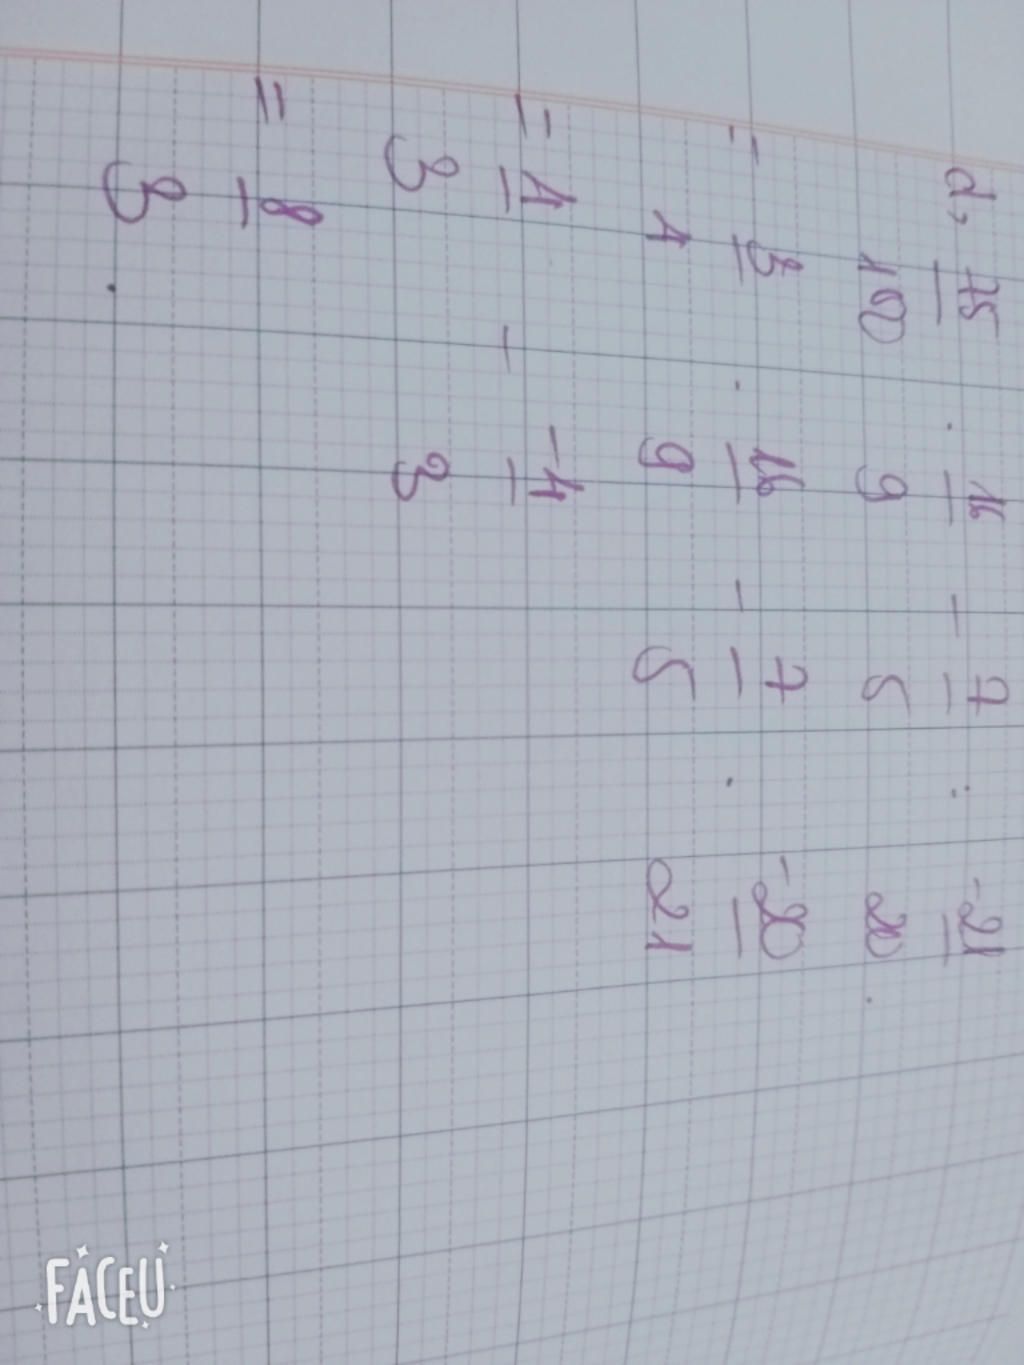 d, 75/100 . 16/9 - 7/5 : -21/20 .
= 3/4 . 16/9 - 7/5 . -20/21
= 4/3 - -4/3
= 8/3 .
FACEU